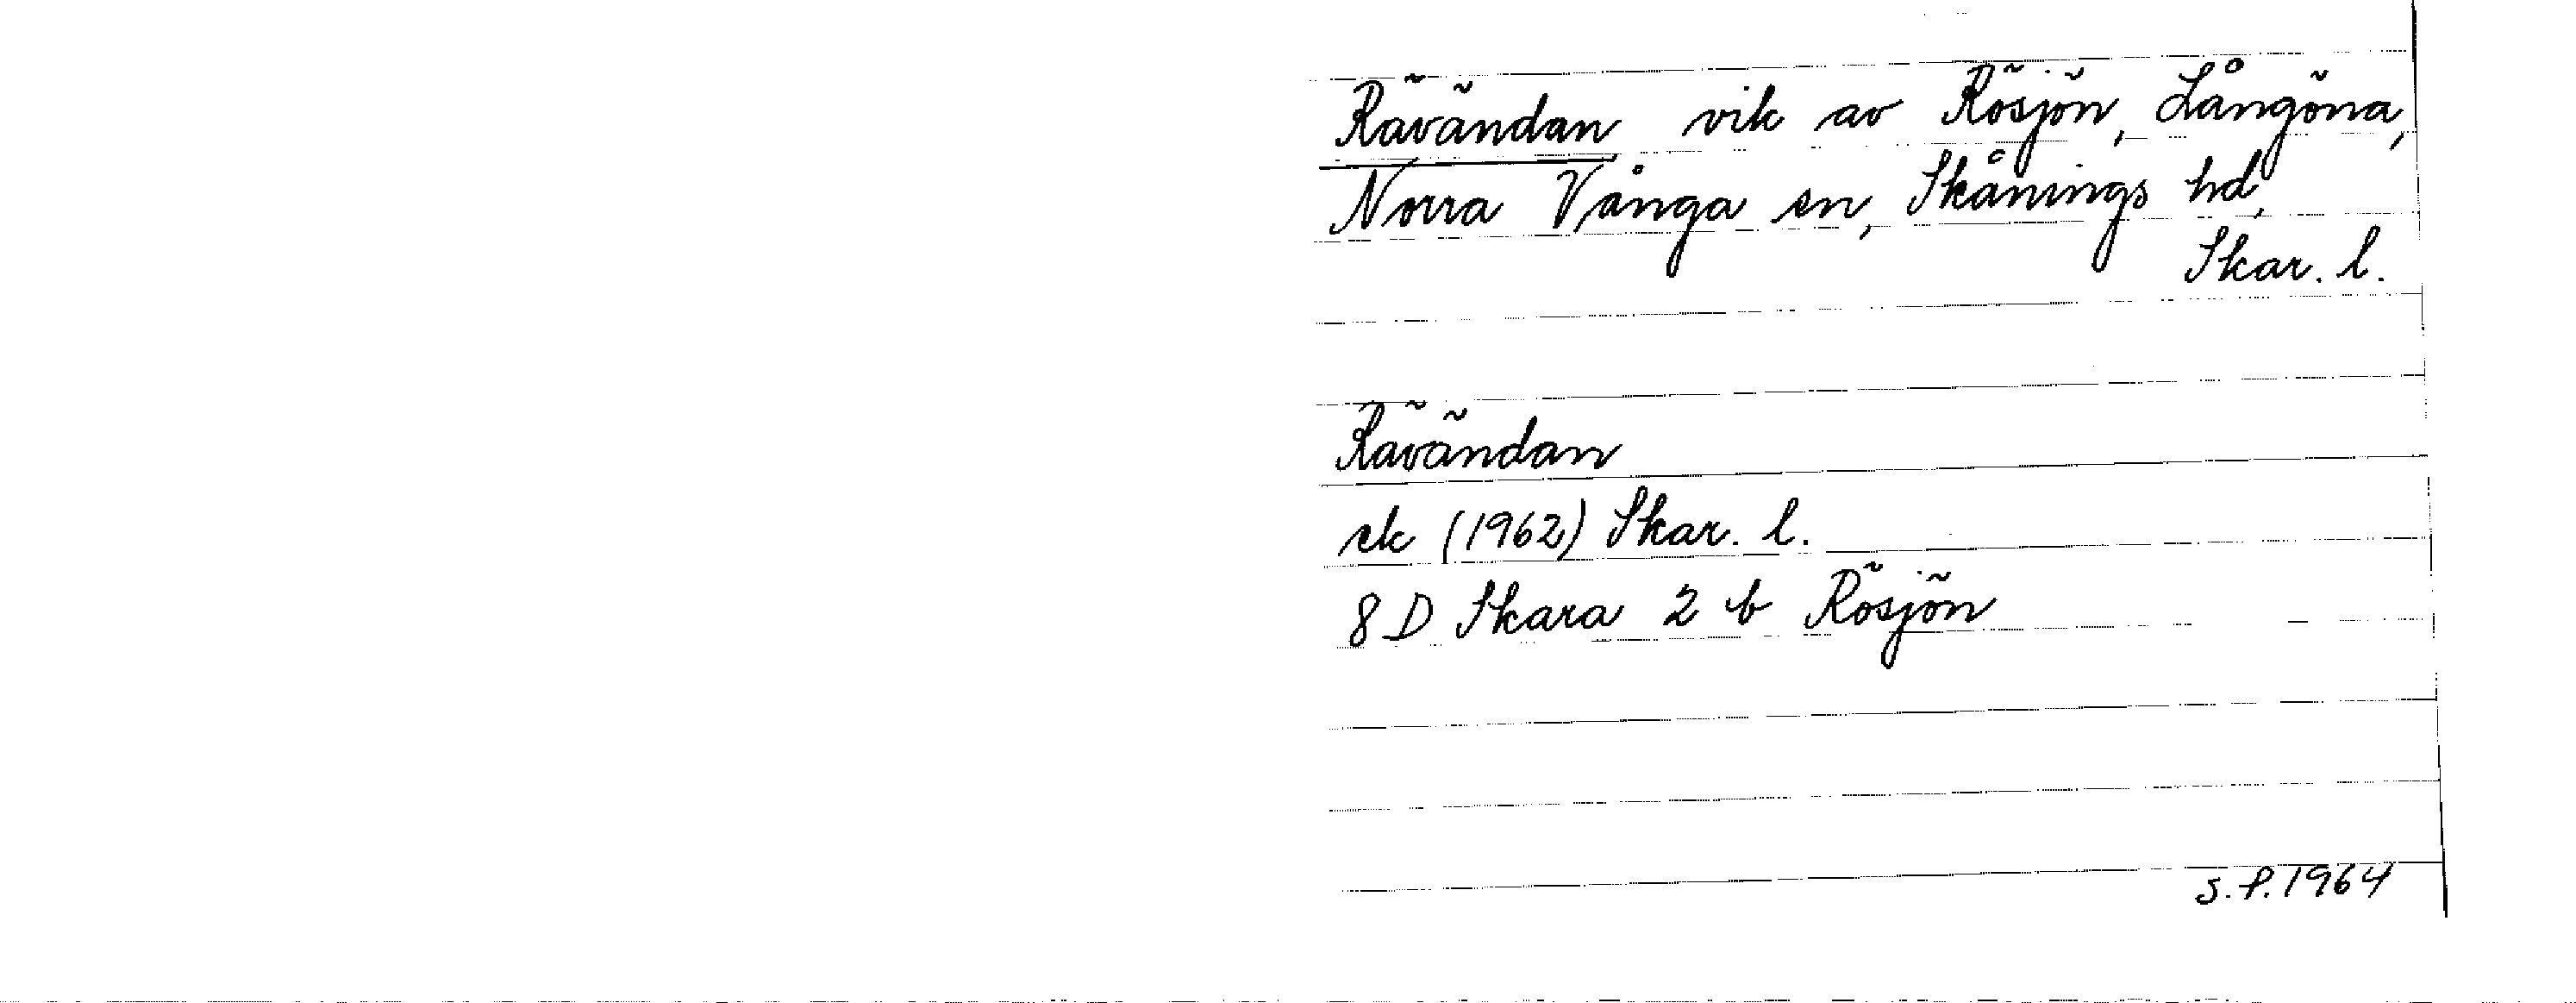 Rävändan vik av Rösjön, Långöna,
Norra Vånga sn, Skånings hd,
Skar. l.
Rävändan
ek (1962) Skar. l.
8 D Skara 2 b Rösjön
S.P. 1964